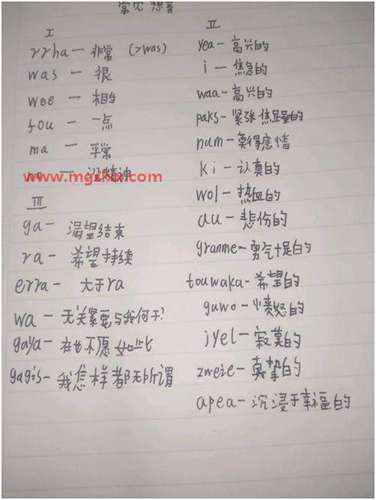 常见想音
I
rrha — 非常 (>was)
was — 很
wee — 相当
fou — 一点
ma — 平常
www.mgzxw.com
III
ga — 渴望结束
ra — 希望持续
erra — 大于ra
wa — 无关紧要与我何干?
gaya — 在也不愿如此
gagis — 我怎样都无所谓
II
yea — 高兴的
i — 焦急的
waa — 高兴的
paks — 紧张焦显的
num — 莫得感情
ki — 认真的
wol — 热血的
au — 悲伤的
granme — 勇气十足的
touwaka — 希望的
guwo — 愤怒的
iyel — 寂寞的
zweie — 真挚的
apea — 沉浸于幸福的